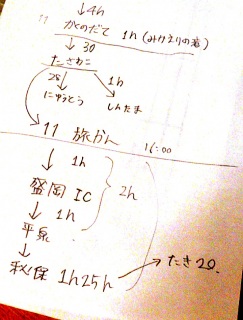 ↓4h
11 かくのだて 1h (みかえりの滝)
↓30
たざわこ
28 1h
にゅうとう しんたま
11 旅かん 16:00
↓1h
盛岡IC 2h
↓1h
平泉
↓
秋保 1h25h → たき20.